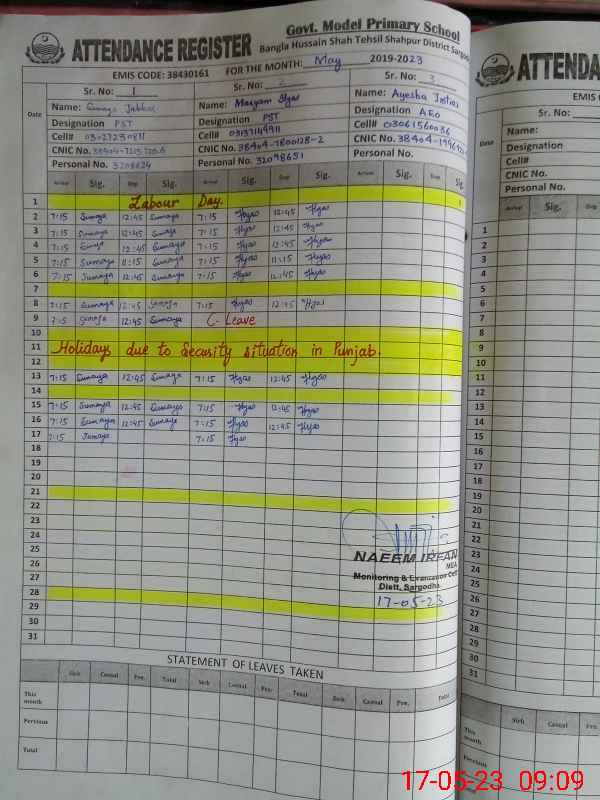 Govt. Model Primary School
ATTENDANCE REGISTER
Bangla Hussain Shah Tehsil Shahpur District Sargo
EMIS CODE: 38430161 FOR THE MONTH: May 2019-2023
Sr. No: 1 Sr. No: 2 Sr. No: 3
Date
Name: Name: Maryam Ilyas Name: Ayesha
Designation PST Designation PST Designation AEO
Cell# Cell# 03137149911 Cell# 03061560036
CNIC No. CNIC No. 38404-7800128-2 CNIC No.
Personal No. Personal No. 32098651 Personal No.
Arrival Sig. Dep Sig. Arrival Sig. Dep Sig. Sig.
1 Labour Day.
2 7:15 Sumaya 12:45 Sumaya 7:15 Ilyas 12:45 Ilyas
3 7:15 Sumaya 12:45 Sumaya 7:15 Ilyas 12:45 Ilyas
4 7:15 Sumaya 12:45 Sumaya 7:15 Ilyas 12:45 Ilyas
5 7:15 Sumaya 11:15 Sumaya 7:15 Ilyas 11:15 Ilyas
6 7:15 Sumaya 12:45 Sumaya 7:15 Ilyas 12:45 Ilyas
7
8 7:15 Sumaya 12:45 Sumaya 7:15 Ilyas 12:45 Ilyas
9 7:15 Sumaya 12:45 Sumaya C-Leave
10
11 Holidays due to Security situation in Punjab.
12
13 7:15 Sumaya 12:45 Sumaya 7:15 Ilyas 12:45 Ilyas
14
15 7:15 Sumaya 12:45 Sumaya 7:15 Ilyas 12:45 Ilyas
16 7:15 Sumaya 12:45 Sumaya 7:15 Ilyas 12:45 Ilyas
17 7:15 Sumaya 7:15 Ilyas
18
19
20
21
22
23
24
25
26
27
28
29
30
31
NAEEM IRFAN
MEA
Monitoring & Evaluation Cell
Distt. Sargodha
17-05-23
STATEMENT OF LEAVES TAKEN
Sick Casual Pre. Total Sick Casual Pre. Total Sick Casual Pre. Total
This month
Pervious
Total
ATTENDA
EMIS C
Sr. No:
Date
Name:
Designation
Cell#
CNIC No.
Personal No.
Arrival Sig. Dep Sig.
1
2
3
4
5
6
7
8
9
10
11
12
13
14
15
16
17
18
19
20
21
22
23
24
25
26
27
28
29
30
31
Sick Casual Pre.
This month
Pervious
Total
17-05-23 09:09